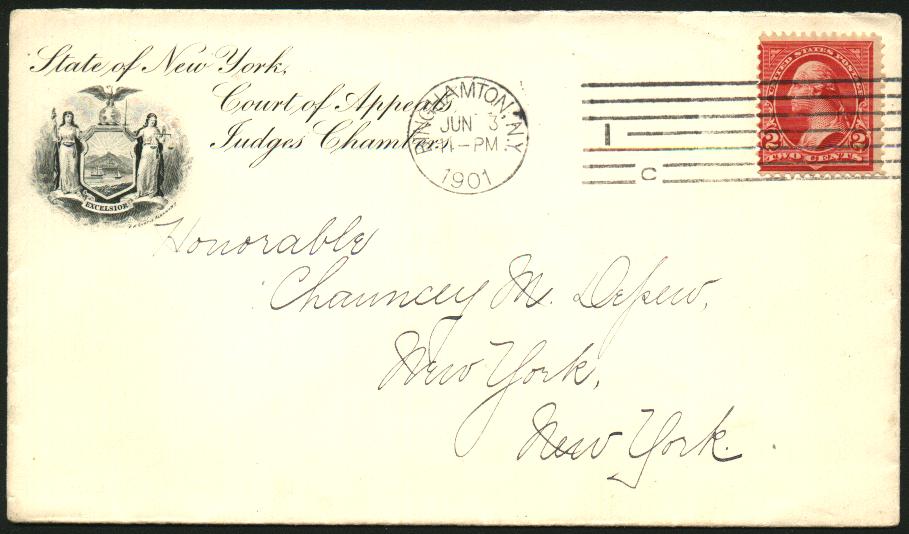 State of New York,
Court of Appeals
Judges Chambers
EXCELSIOR
BINGHAMTON, N.Y.
JUN 3
4-PM
1901
1
C
UNITED STATES POSTAGE
2 2
TWO CENTS
Honorable
Chauncey M. Depew,
New York,
New York.